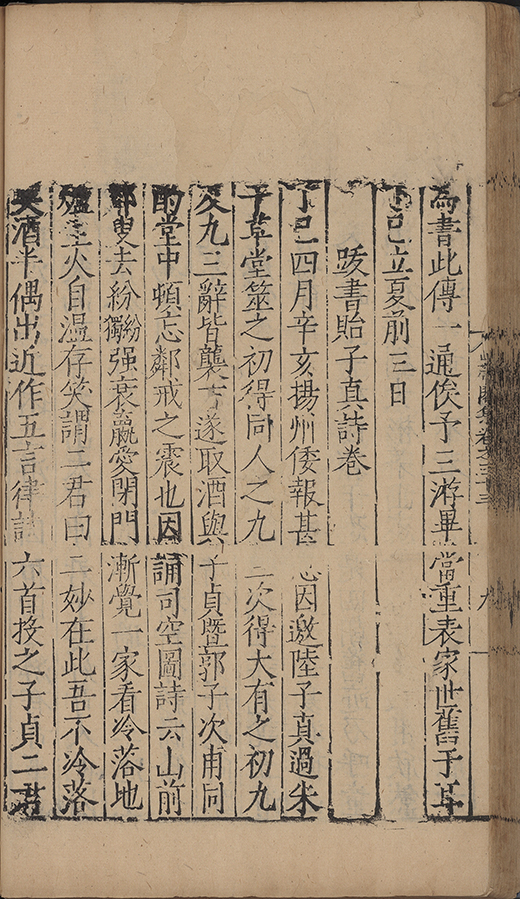 為書此傳一通俟予三游畢當重表家世舊于耳
巳立夏前三日
跋書貽子真詩卷
丁巳四月辛亥揚州倭報甚因邀陸子真過朱
子草堂筮之初得同人之九二次得大有之初九
爻九三辭皆襲遂取酒與子貞暨郭子次甫同
酌堂中頓忘鄰戒之震也因誦司空圖詩云山前
鄰叟去紛紛獨强衰羸愛閉門漸覺一家看冷落地
爐生火自温存笑謂二君曰二妙在此吾不冷落
矣酒半偶出近作五言律詩六首投之子貞二君
卷之三十三
九